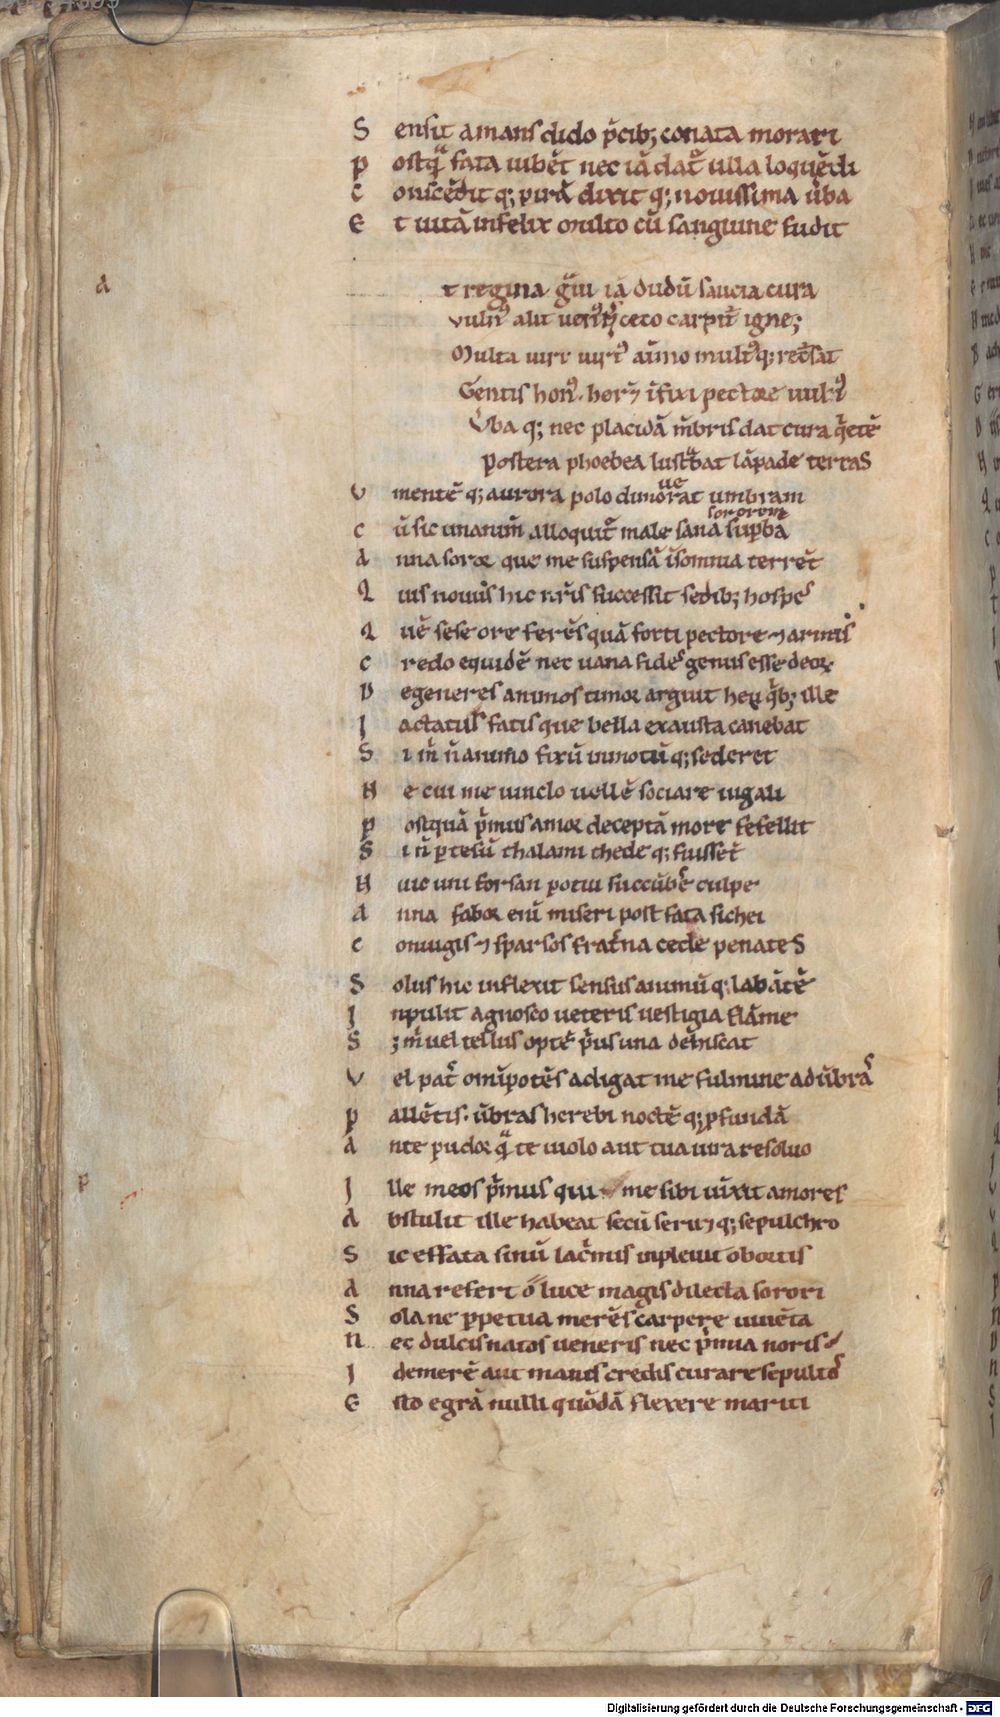 S ensit amans dido p̄cib; conata morari
P ostq̄ fata iubēt nec iā dat᷑ ulla loquēdi
C onscēdit q; pirā dixit q; nouissima ūba
E t uitā infelix multo cū sanguine fudit
a t regina gͥui iā dudū saucia cura
vulnꝰ alit uen ceco carpit᷑ igne;
Multa uiri uirtꝰ aīmo multꝰq; recͥsat
Gentis honꝰ. heret īfixi pectore uulꝰ
v̄ba q; nec placidā mēbris dat cura q̄etē
Postera phoebea lustᵃbat lāpade terras
V mentē q; aurora polo dimorat umbram
ue
sororem
C ū sic unanimē alloquit᷑ male sana supba
A nna soror que me suspensā īsomnia terrēt
Q uis nouus hic nr̄is successit sedib; hospes
Q uē sese ore ferēs quā forti pectore ⁊ armis
C redo equidē nec uana fides genus esse deoꝝ
D egeneres animos timor arguit heu q̄b; ille
I actatus fatis que bella exausta canebat
S i m̄ n̄ animo fixū inmotū q; sederet
N e cui me uinclo uellē sociare iugali
P ostquā p̄mus amor deceptā morte fefellit
S i n̄ ꝑtesū thalami thede q; fuisset᷑
H uic uni forsan potui succūbere culpe
A nna fabor enī miseri post fata sichei
C oniugis ⁊ sparsos frat̄na cede penates
S olus hic inflexit sensus animū q; labātē
I npulit agnosco ueteris uestigia flāme
S ; m̄ uel tellus optē p̄us una dehiscat
V el pat᷑ omīpotēs adigat me fulmine ad ūbras
P allētis. ūbras herebi noctē q; ꝓfundā
A nte pudor q̄ te uiolo aut tua iura resoluo
P
I lle meos p̄mus qui me sibi uīxit amores
A bstulit ille habeat secū seru⁊ q; sepulchro
S ic effata sinū lac̄mis inpleuit obortis
A nna refert o luce magis dilecta sorori
S ola ne ꝑpetua merēs carpere iuuēta
N ec dulcis natos ueneris nec p̄mia noris
I d cinerē aut manis credis curare sepultos
E sto egrā nulli quōdā flexere mariti
Digitalisierung gefördert durch die Deutsche Forschungsgemeinschaft - DFG